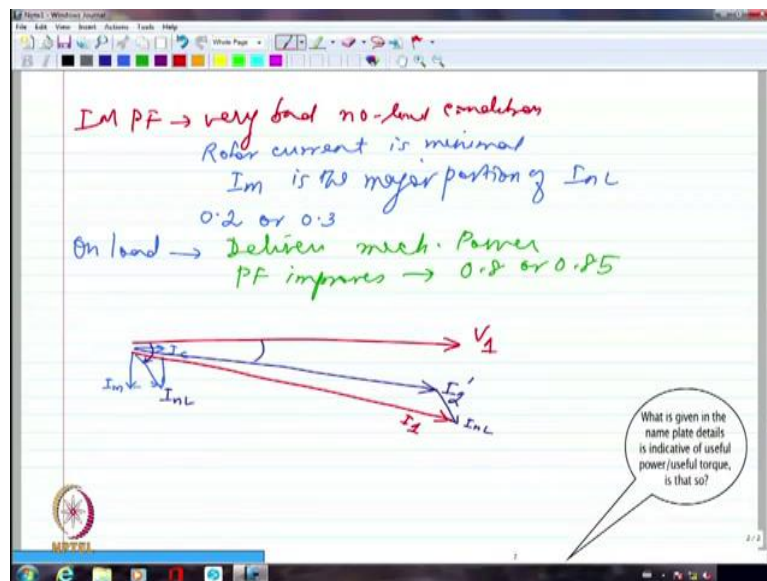 Note1 - Windows Journal
File Edit View Insert Actions Tools Help
Whole Page
B I
IM PF → very bad no-load condition
Rotor current is minimal
Im is the major portion of InL
0.2 or 0.3
On load → Delivers mech. Power
PF improves → 0.8 or 0.85
V1
Ic
Im
InL
I2'
I1
InL
What is given in the
name plate details
is indicative of useful
power/useful torque,
is that so?
NPTEL
2/2
7